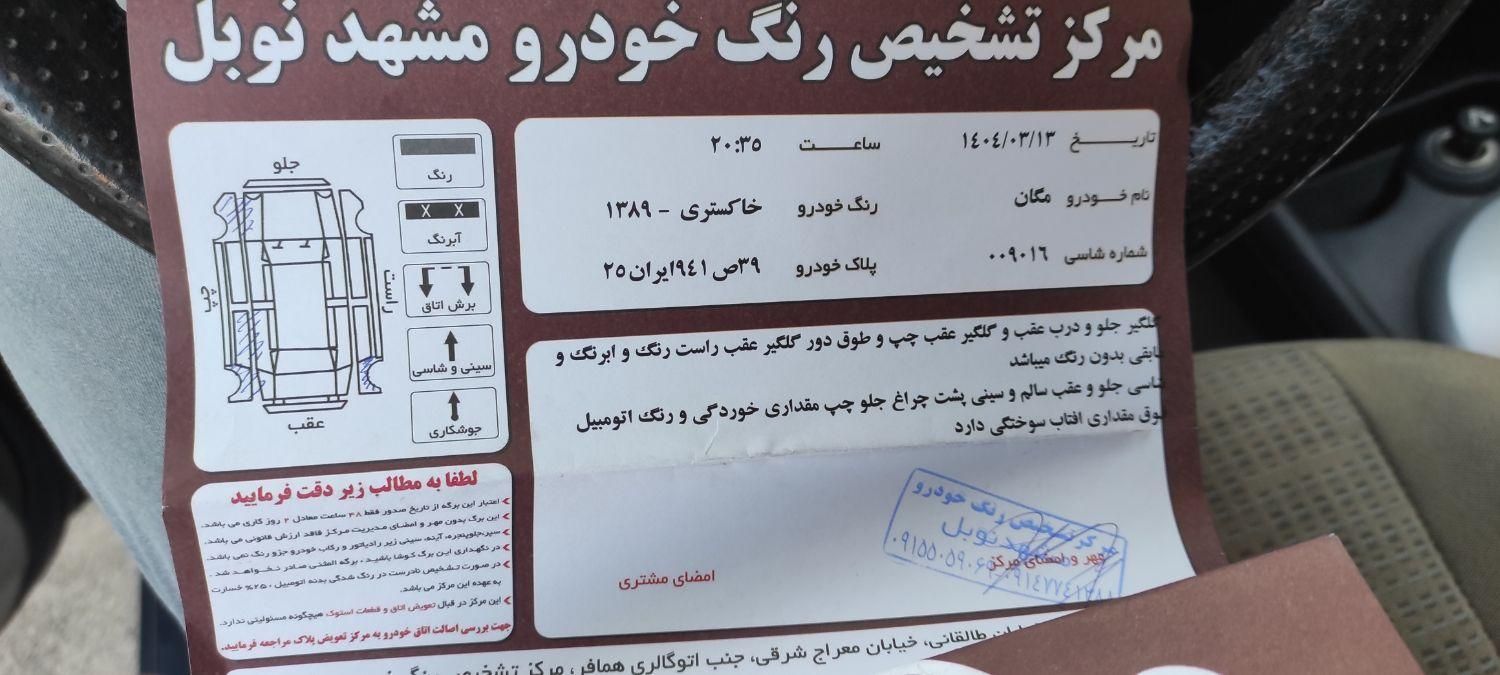 مرکز تشخیص رنگ خودرو مشهد نوبل
تاریخ ۱۴۰۴/۰۳/۱۳ ساعت ۲۰:۳۵
نام خودرو مگان رنگ خودرو خاکستری - ۱۳۸۹
شماره شاسی ۰۰۹۰۱۶ پلاک خودرو ۳۹ص۹۴۱ایران۲۵
گلگیر جلو و درب عقب و گلگیر عقب چپ و طوق دور گلگیر عقب راست رنگ و ابرنگ و
مابقی بدون رنگ میباشد
شاسی جلو و عقب سالم و سینی پشت چراغ جلو چپ مقداری خوردگی و رنگ اتومبیل
فوق مقداری افتاب سوختگی دارد
مرکز تشخیص رنگ خودرو
مشهد نوبل
مهر و امضای مرکز
امضای مشتری
جلو
راست
چپ
عقب
رنگ
X X
آبرنگ
برش اتاق
سینی و شاسی
جوشکاری
لطفا به مطالب زیر دقت فرمایید
اعتبار این برگه از تاریخ صدور فقط ۴۸ ساعت معادل ۲ روز کاری می باشد.
این برگ بدون مهر و امضای مدیریت مرکز فاقد ارزش قانونی می باشد.
سپر،جلوپنجره، آینه، سینی زیر رادیاتور و رکاب خودرو جزو رنگ نمی باشد.
در نگهداری این برگ کوشا باشید ، برگه المثنی صادر نخواهد شد .
در صورت تشخیص نادرست در رنگ شدگی بدنه اتومبیل ، ۲۵% خسارت
به عهده این مرکز می باشد.
این مرکز در قبال تعویض اتاق و قطعات استوک هیچگونه مسئولیتی ندارد.
جهت بررسی اصالت اتاق خودرو به مرکز تعویض پلاک مراجعه فرمایید.
طالقانی، خیابان معراج شرقی، جنب اتوگالری همافر، مرکز تشخیص